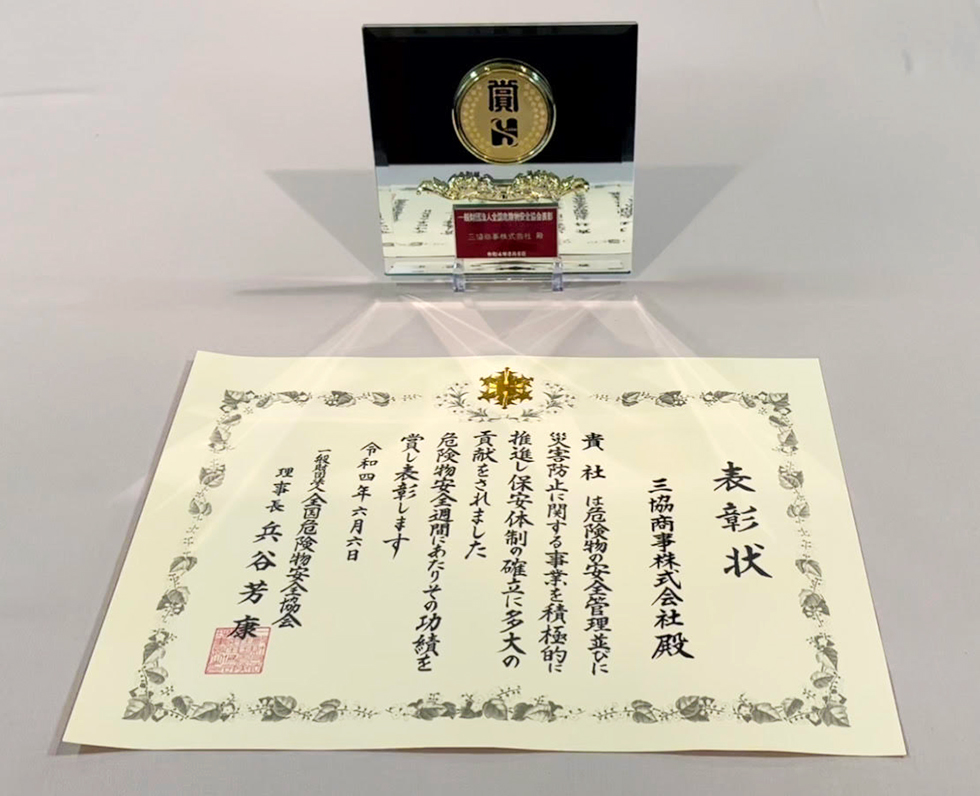 賞
一般財団法人全国危険物安全協会表彰
三協商事株式会社 殿
表彰状
三協商事株式会社殿
貴社 は危険物の安全管理並びに
災害防止に関する事業を積極的に
推進し保安体制の確立に多大の
貢献をされました
危険物安全週間にあたりその功績を
賞し表彰します
令和四年六月六日
一般財団法人全国危険物安全協会
理事長 兵谷芳康